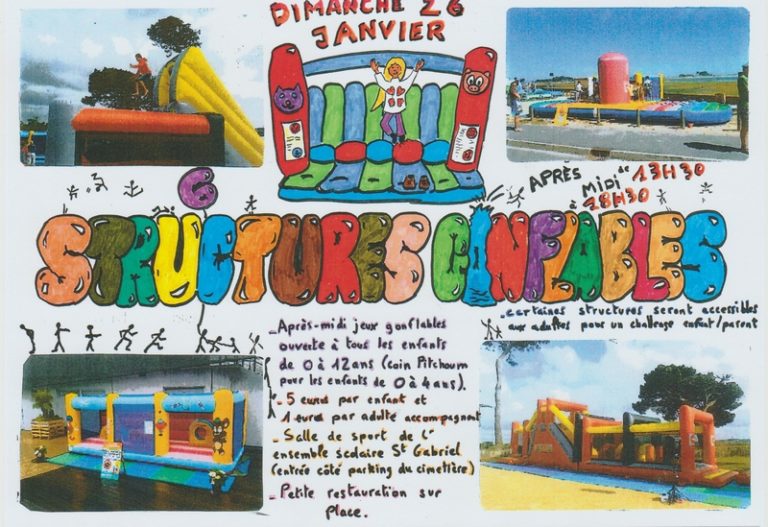 DIMANCHE 26
JANVIER
APRÈS
MIDI de 13H30
à 18H30
6
STRUCTURES GONFLABLES
_certaines structures seront accessibles
aux adultes pour un challenge enfant/parent
_Après-midi jeux gonflables
ouverte à tous les enfants
de 0 à 12 ans (Coin Pitchoum
pour les enfants de 0 à 4 ans).
_ 5 euros par enfant et
1 euros par adulte accompagnant
_ Salle de sport de l'
ensemble scolaire St Gabriel
(entrée côté parking du cimetière)
_ Petite restauration sur
Place.